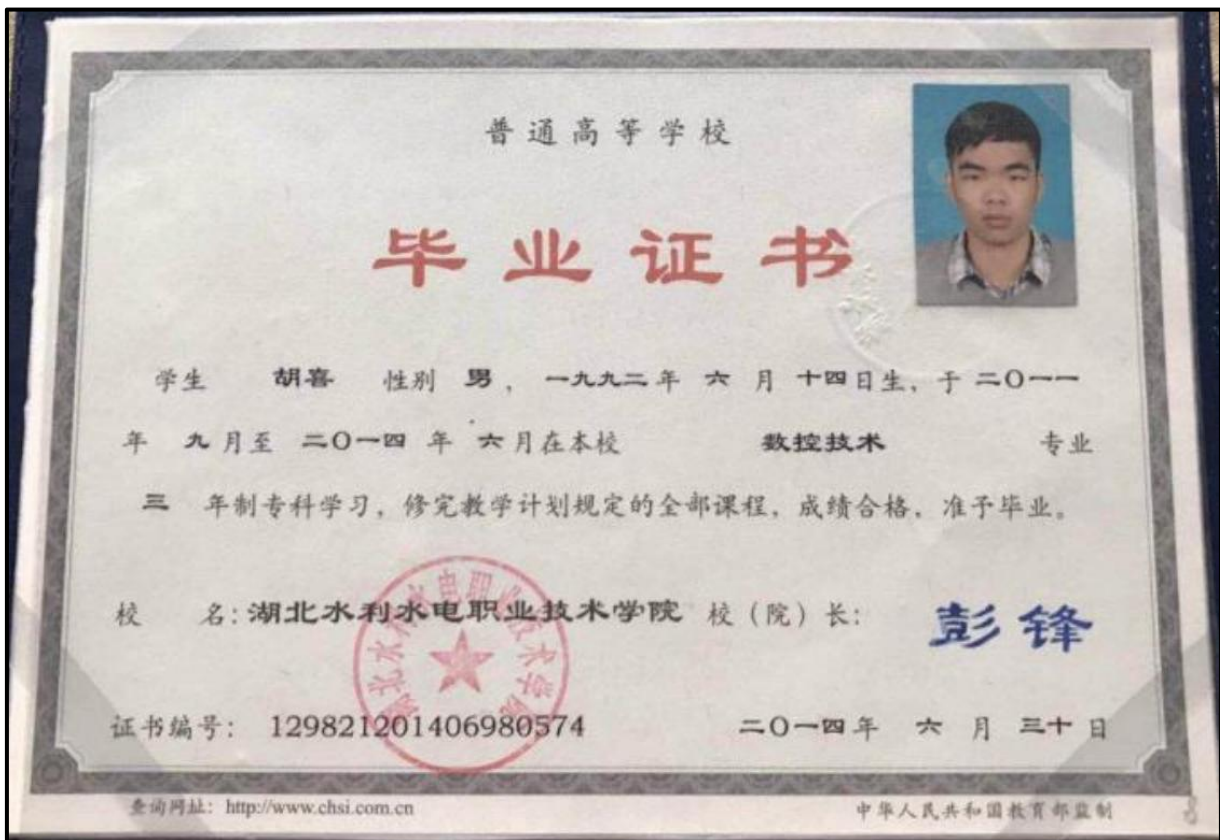 普通高等学校
毕业证书
学生 胡喜 性别 男，一九九二年 六 月 十四日生，于 二〇一一
年 九月至 二〇一四 年 六月在本校 数控技术 专业
三 年制专科学习，修完教学计划规定的全部课程，成绩合格，准予毕业。
校 名：湖北水利水电职业技术学院 校（院）长： 彭锋
湖北水利水电职业技术学院
证书编号： 129821201406980574 二〇一四年 六 月 三十日
查询网址：http://www.chsi.com.cn 中华人民共和国教育部监制